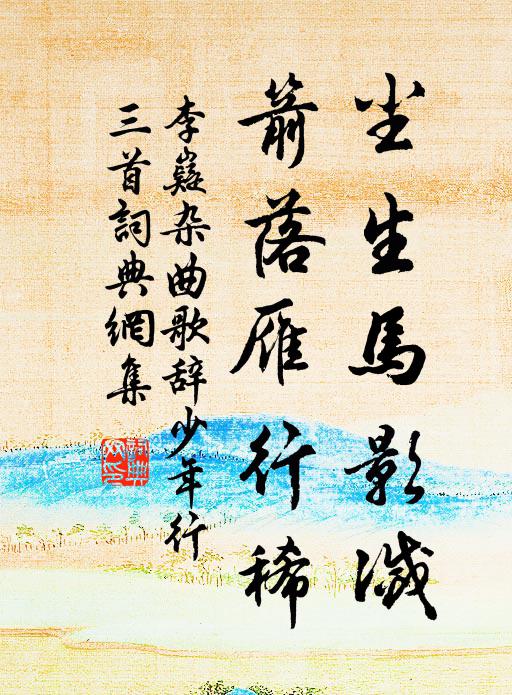 尘生馬影滅
箭落雁行稀
李嶷杂曲歌辞少年行
三首詞典網集